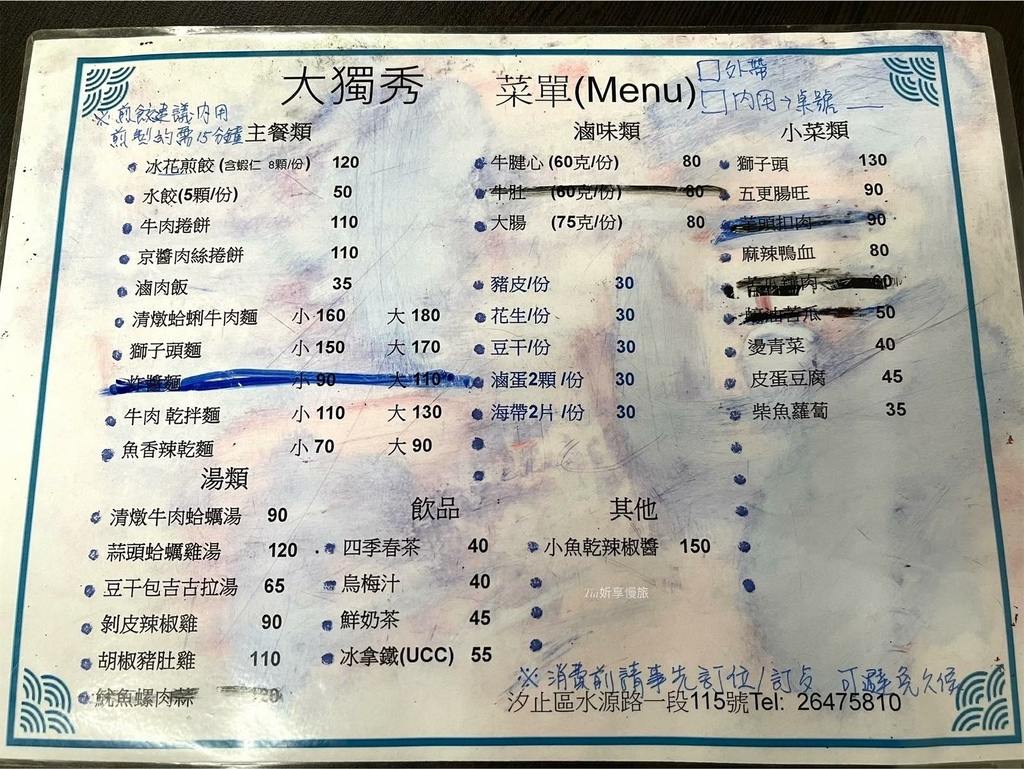 大獨秀 菜單(Menu)
□外帶
□內用→桌號
※煎餃建議內用
煎製約需15分鐘
主餐類
冰花煎餃 (含蝦仁 8顆/份) 120
水餃(5顆/份) 50
牛肉捲餅 110
京醬肉絲捲餅 110
滷肉飯 35
清燉蛤蜊牛肉麵 小 160 大 180
獅子頭麵 小 150 大 170
炸醬麵 小 90 大 110
牛肉 乾拌麵 小 110 大 130
魚香辣乾麵 小 70 大 90
滷味類
牛腱心 (60克/份) 80
牛肚 (60克/份) 80
大腸 (75克/份) 80
豬皮/份 30
花生/份 30
豆干/份 30
滷蛋2顆 /份 30
海帶2片 /份 30
小菜類
獅子頭 130
五更腸旺 90
芋頭扣肉 90
麻辣鴨血 80
苦瓜鑲肉 60
蠔油苦瓜 50
燙青菜 40
皮蛋豆腐 45
柴魚蘿蔔 35
湯類
清燉牛肉蛤蠣湯 90
蒜頭蛤蠣雞湯 120
豆干包吉古拉湯 65
剝皮辣椒雞 90
胡椒豬肚雞 110
魷魚螺肉蒜 120
飲品
四季春茶 40
烏梅汁 40
鮮奶茶 45
冰拿鐵(UCC) 55
其他
小魚乾辣椒醬 150
Tia妡享慢旅
※消費前請事先訂位/訂餐 可避免久候
汐止區水源路一段115號Tel: 26475810